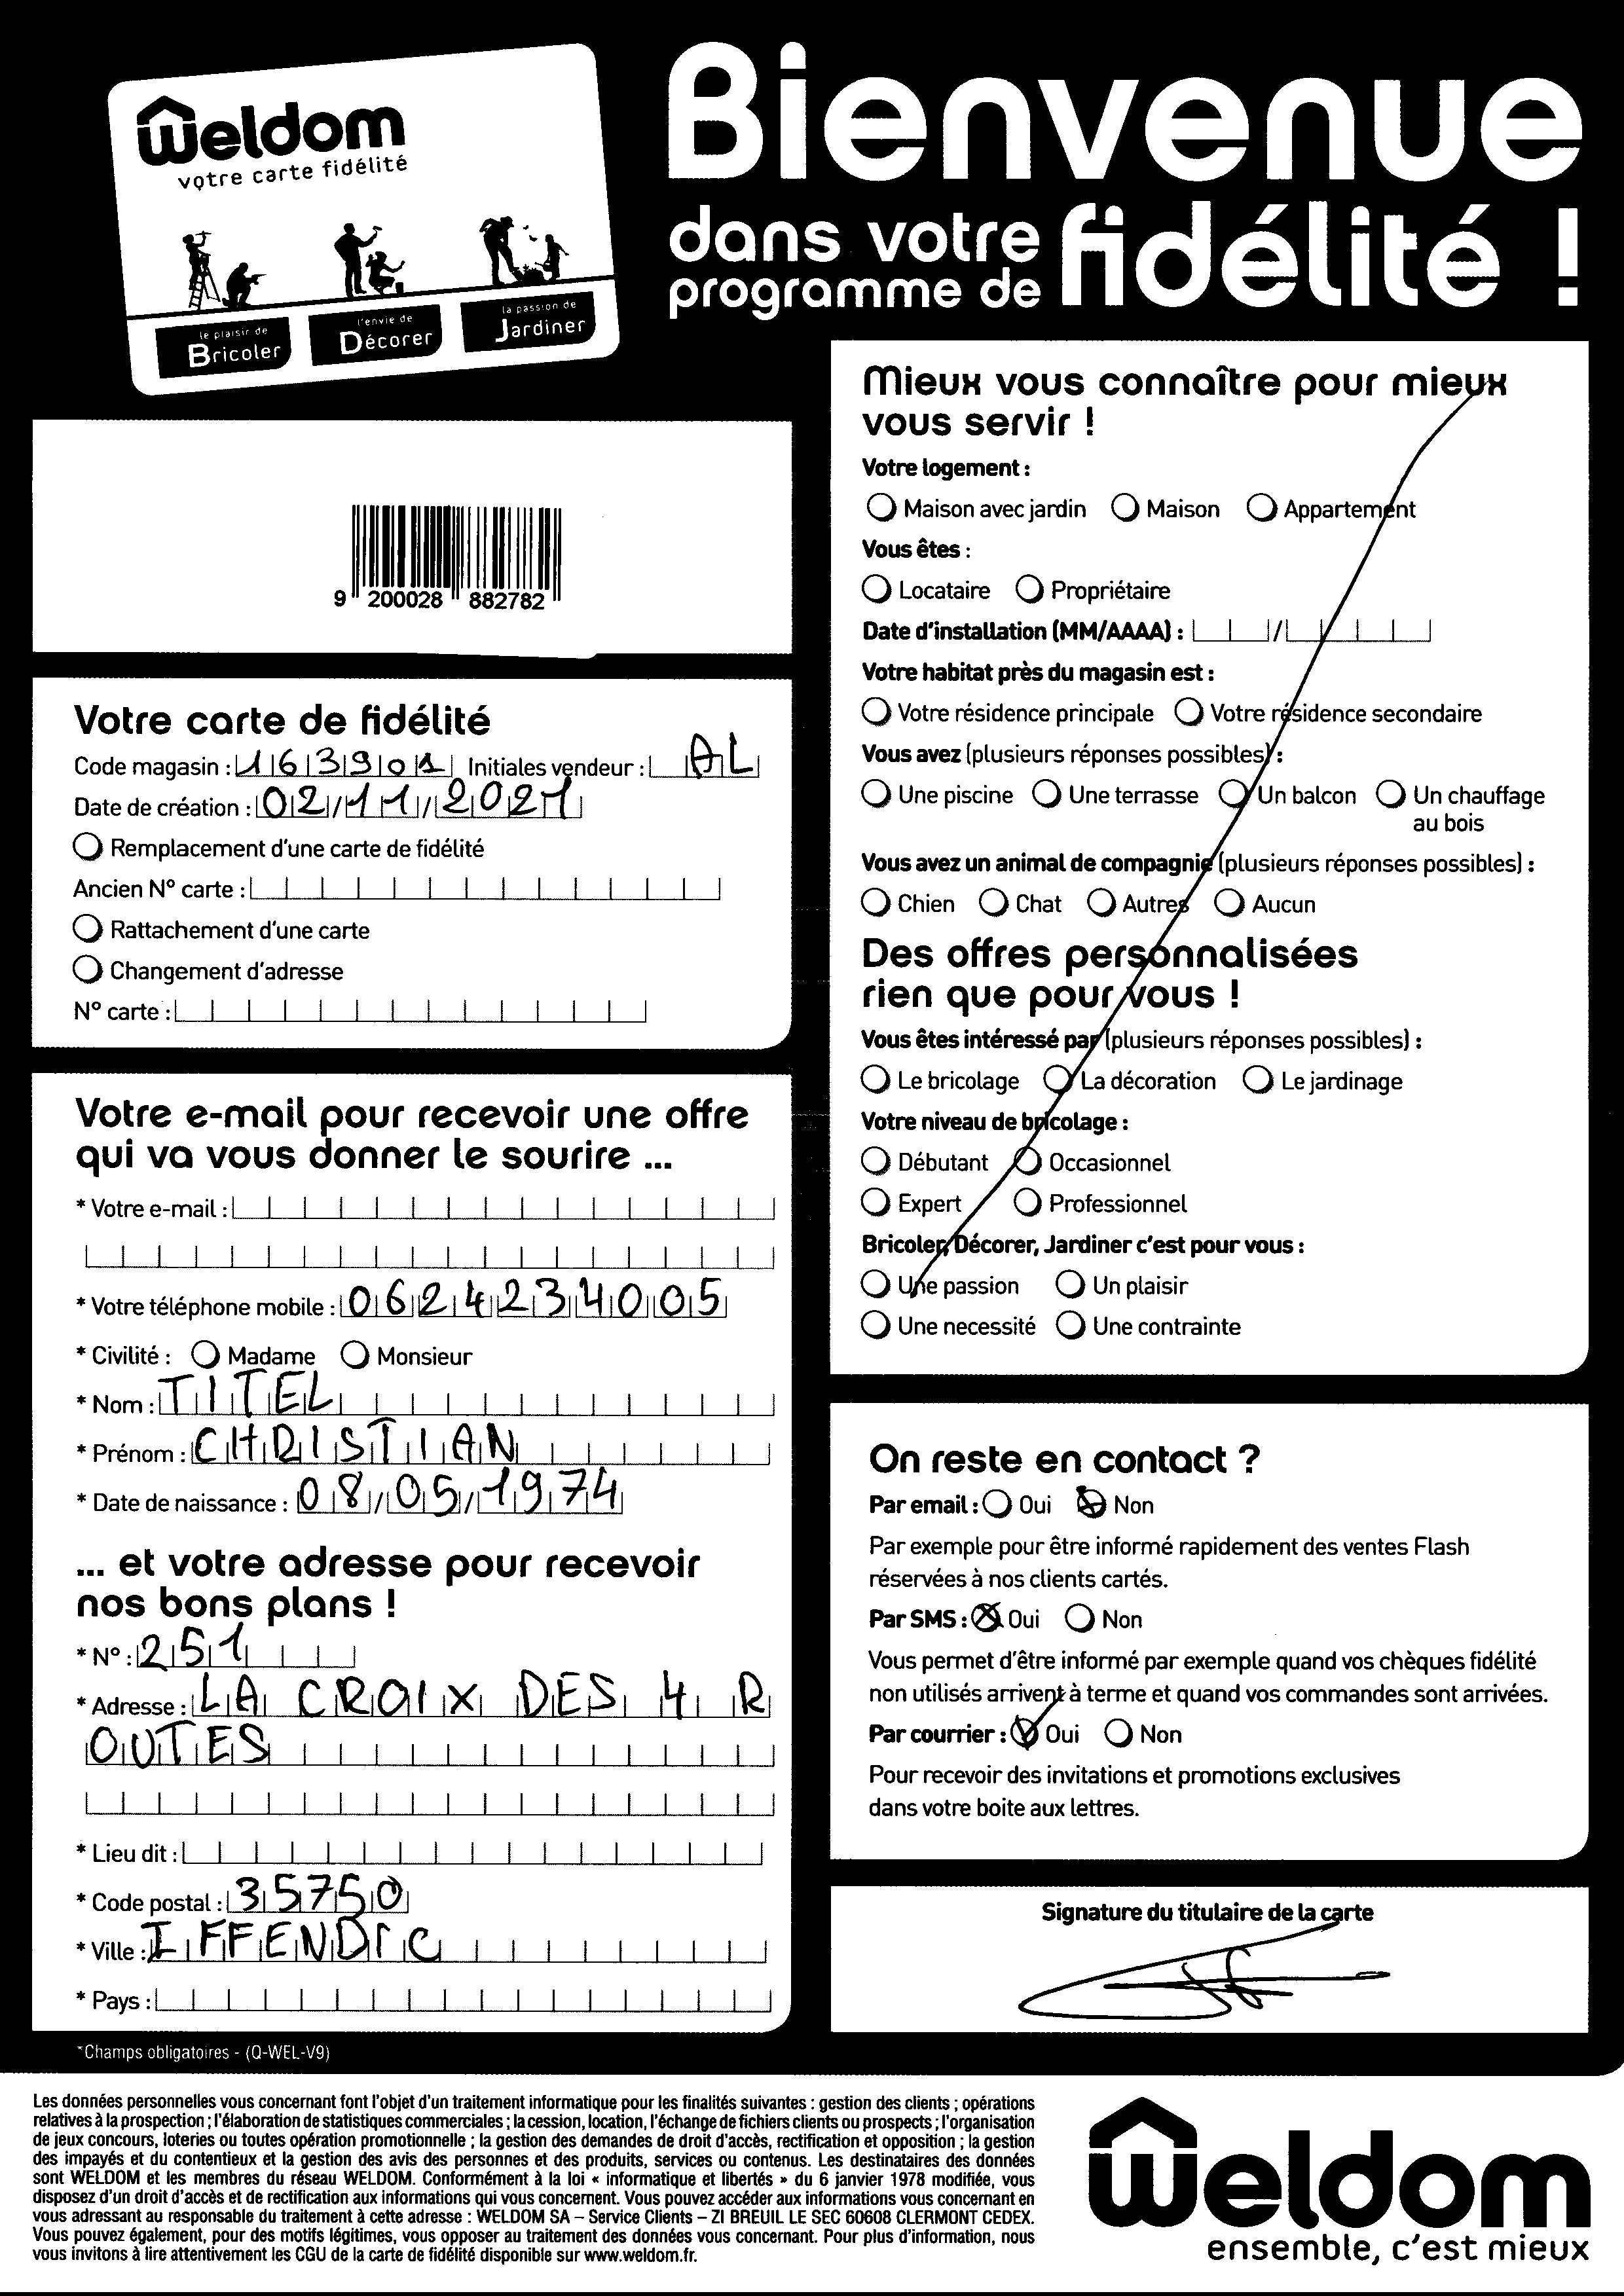 weldom
votre carte fidélité
le plaisir de
Bricoler
l'envie de
Décorer
la passion de
Jardiner
Bienvenue
dans votre
programme de fidélité !
9 200028 882782
Votre carte de fidélité
Code magasin : 163901 Initiales vendeur : AL
Date de création : 02/11/2021
Remplacement d'une carte de fidélité
Ancien N° carte :
Rattachement d'une carte
Changement d'adresse
N° carte :
Votre e-mail pour recevoir une offre
qui va vous donner le sourire ...
* Votre e-mail :
* Votre téléphone mobile : 0624234005
* Civilité : Madame Monsieur
* Nom : TITEL
* Prénom : CHRISTIAN
* Date de naissance : 08/05/1974
... et votre adresse pour recevoir
nos bons plans !
* N° : 251
* Adresse : LA CROIX DES 4 R
OUTES
* Lieu dit :
* Code postal : 35750
* Ville : IFFENDIC
* Pays :
*Champs obligatoires - (Q-WEL-V9)
Mieux vous connaître pour mieux
vous servir !
Votre logement :
Maison avec jardin Maison Appartement
Vous êtes :
Locataire Propriétaire
Date d'installation (MM/AAAA) : /
Votre habitat près du magasin est :
Votre résidence principale Votre résidence secondaire
Vous avez (plusieurs réponses possibles) :
Une piscine Une terrasse Un balcon Un chauffage
au bois
Vous avez un animal de compagnie (plusieurs réponses possibles) :
Chien Chat Autres Aucun
Des offres personnalisées
rien que pour vous !
Vous êtes intéressé par (plusieurs réponses possibles) :
Le bricolage La décoration Le jardinage
Votre niveau de bricolage :
Débutant Occasionnel
Expert Professionnel
Bricoler, Décorer, Jardiner c'est pour vous :
Une passion Un plaisir
Une necessité Une contrainte
On reste en contact ?
Par email : Oui Non
Par exemple pour être informé rapidement des ventes Flash
réservées à nos clients cartés.
Par SMS : Oui Non
Vous permet d'être informé par exemple quand vos chèques fidélité
non utilisés arrivent à terme et quand vos commandes sont arrivées.
Par courrier : Oui Non
Pour recevoir des invitations et promotions exclusives
dans votre boite aux lettres.
Signature du titulaire de la carte
Les données personnelles vous concernant font l'objet d'un traitement informatique pour les finalités suivantes : gestion des clients ; opérations
relatives à la prospection ; l'élaboration de statistiques commerciales ; la cession, location, l'échange de fichiers clients ou prospects ; l'organisation
de jeux concours, loteries ou toutes opération promotionnelle ; la gestion des demandes de droit d'accès, rectification et opposition ; la gestion
des impayés et du contentieux et la gestion des avis des personnes et des produits, services ou contenus. Les destinataires des données
sont WELDOM et les membres du réseau WELDOM. Conformément à la loi « informatique et libertés » du 6 janvier 1978 modifiée, vous
disposez d'un droit d'accès et de rectification aux informations qui vous concernent. Vous pouvez accéder aux informations vous concernant en
vous adressant au responsable du traitement à cette adresse : WELDOM SA – Service Clients – ZI BREUIL LE SEC 60608 CLERMONT CEDEX.
Vous pouvez également, pour des motifs légitimes, vous opposer au traitement des données vous concernant. Pour plus d'information, nous
vous invitons à lire attentivement les CGU de la carte de fidélité disponible sur www.weldom.fr.
weldom
ensemble, c'est mieux